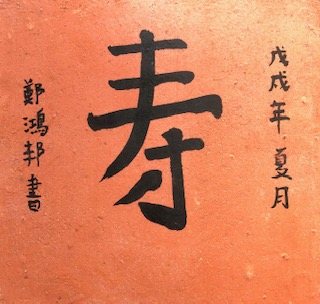 戊戌年夏月
寿
鄭鴻邦書